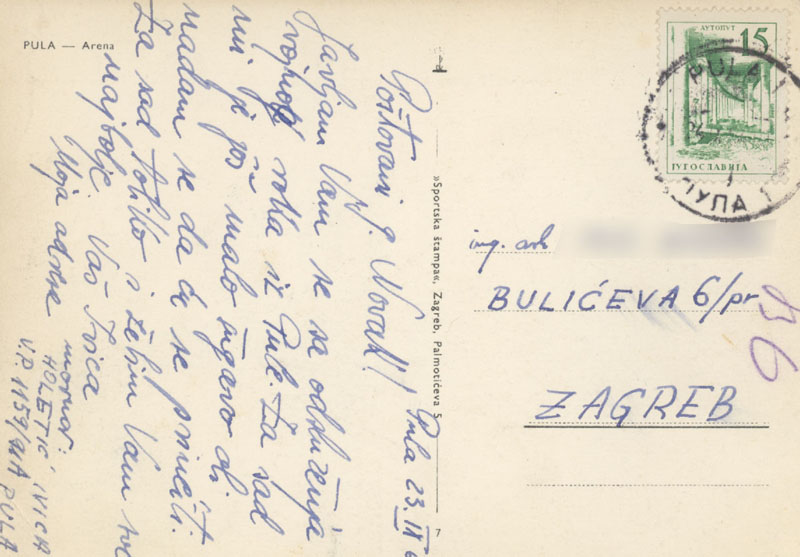 PULA — Arena
Pula 23. IX 6
Poštovani g. Novak!
Javljam Vam se sa odsluženja
vojnog roka iz Pule. Za sad
mi je još malo
nadam se da će se
Za sad toliko i želim Vam sve
najbolje Vaš Ivica
Moja adresa mornar:
HOLETIĆ IVICA
V.P. 1159/ PULA
»Sportska štampa«, Zagreb, Palmotićeva 5
7
АУТОПУТ
15
ЈУГОСЛАВИЈА
PULA 1
ПУЛА 1
ing. arh
BULIĆEVA 6/pr
ZAGREB